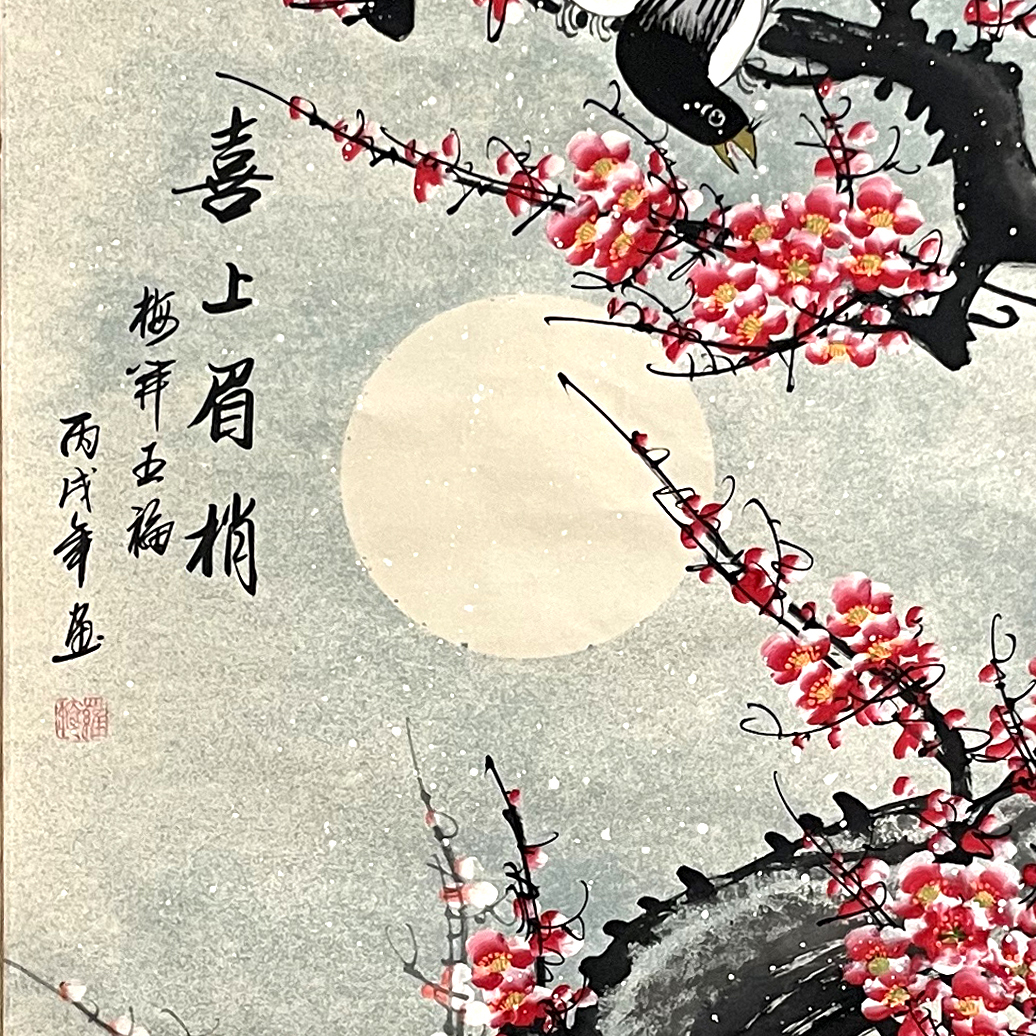 喜上眉梢
梅開五福
丙戌年畫